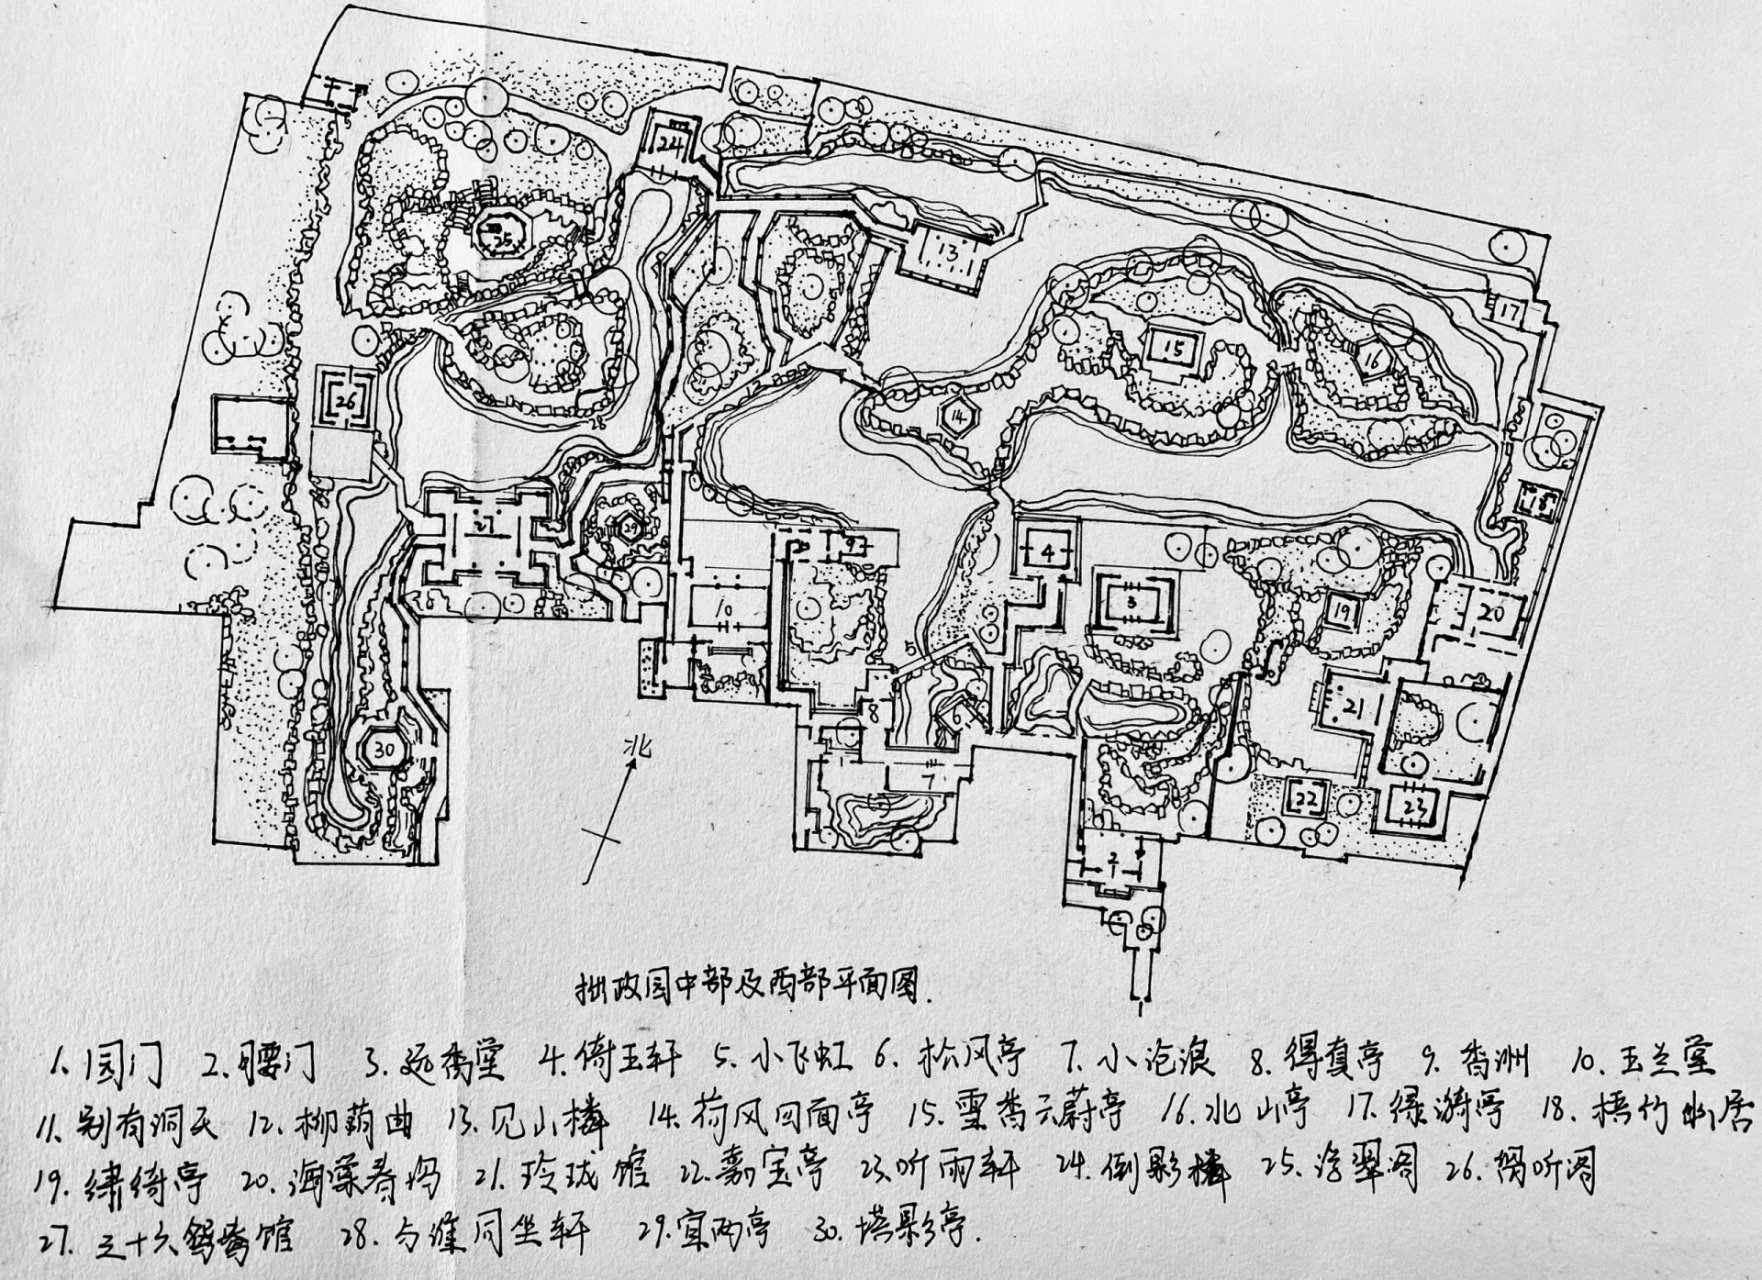 24
25
13
17
15
16
12
26
14
28
18
27
29
9
4
3
10
19
20
5
21
8
6
北
30
7
22
23
2
1
拙政园中部及西部平面图.
1. 园门 2. 腰门 3. 远香堂 4. 倚玉轩 5. 小飞虹 6. 松风亭 7. 小沧浪 8. 得真亭 9. 香洲 10. 玉兰堂
11. 别有洞天 12. 柳荫曲 13. 见山楼 14. 荷风四面亭 15. 雪香云蔚亭 16. 北山亭 17. 绿漪亭 18. 梧竹幽居
19. 绣绮亭 20. 海棠春坞 21. 玲珑馆 22. 嘉宝亭 23. 听雨轩 24. 倒影楼 25. 浮翠阁 26. 留听阁
27. 三十六鸳鸯馆 28. 与谁同坐轩 29. 宜两亭 30. 塔影亭.